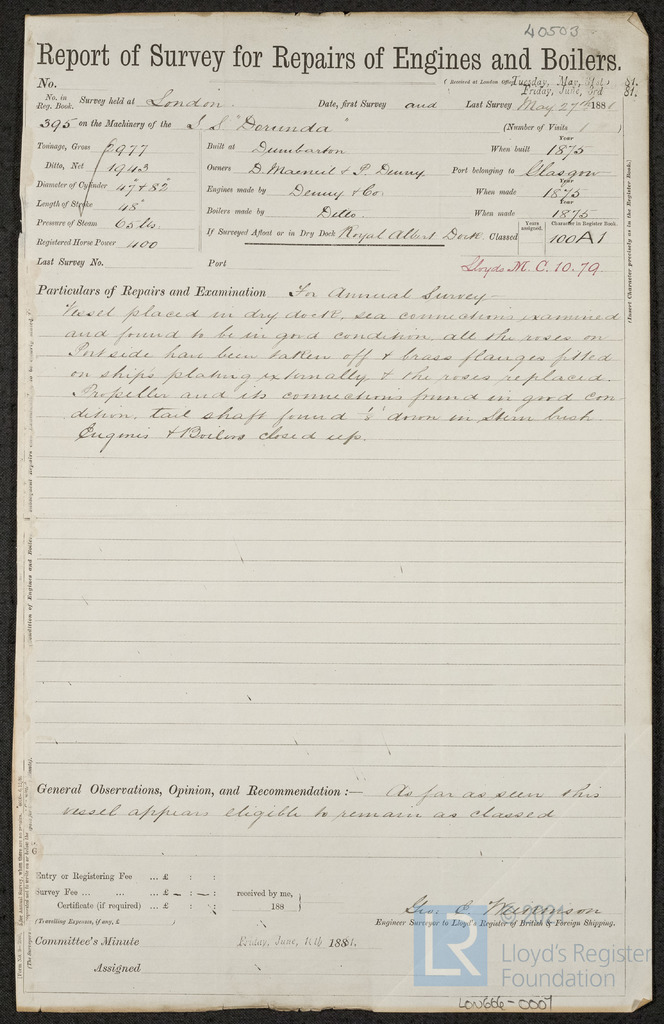 40503
Report of Survey for Repairs of Engines and Boilers.
No. (Received at London Office Tuesday, May, 31st 81.
Friday, June, 3rd 81.
No. in Reg. Book. Survey held at London. Date, first Survey and Last Survey May 27th 1881
395 on the Machinery of the S.S. "Dorunda" (Number of Visits 1)
Tonnage, Gross 2977 Built at Dumbarton When built Year 1875
Ditto, Net 1943 Owners D. Macneil & P. Denny Port belonging to Glasgow
Diameter of Cylinder 47" & 82" Engines made by Denny & Co. When made Year 1875
Length of Stroke 48"
Pressure of Steam 65 lbs. Boilers made by Ditto. When made Year 1875
Registered Horse Power 400 If Surveyed Afloat or in Dry Dock Royal Albert Dock. Classed Years assigned. Character in Register Book. 100 A1
Last Survey No. Port Lloyds M.C. 10.79.
(Insert Character precisely as in the Register Book.)
Particulars of Repairs and Examination For Annual Survey —
Vessel placed in dry dock, sea connections examined
and found to be in good condition, all the roses on
Port side have been taken off & brass flanges fitted
on ships plating externally & the roses replaced.
Propeller and its connections found in good con-
dition. tail shaft found ⅛" down in Stern bush
Engines & Boilers closed up.
General Observations, Opinion, and Recommendation :— As far as seen this
vessel appears eligible to remain as classed
Entry or Registering Fee ... £ : :
Survey Fee ... ... ... £ — : — : received by me,
Certificate (if required) ... £ : : 188
(Travelling Expenses, if any, £ )
Geo. C.
Engineer Surveyor to Lloyd's Register of British & Foreign Shipping.
Committee's Minute Friday, June, 10th 1881.
Assigned
LR
Lloyd's Register
Foundation
LON666-0007